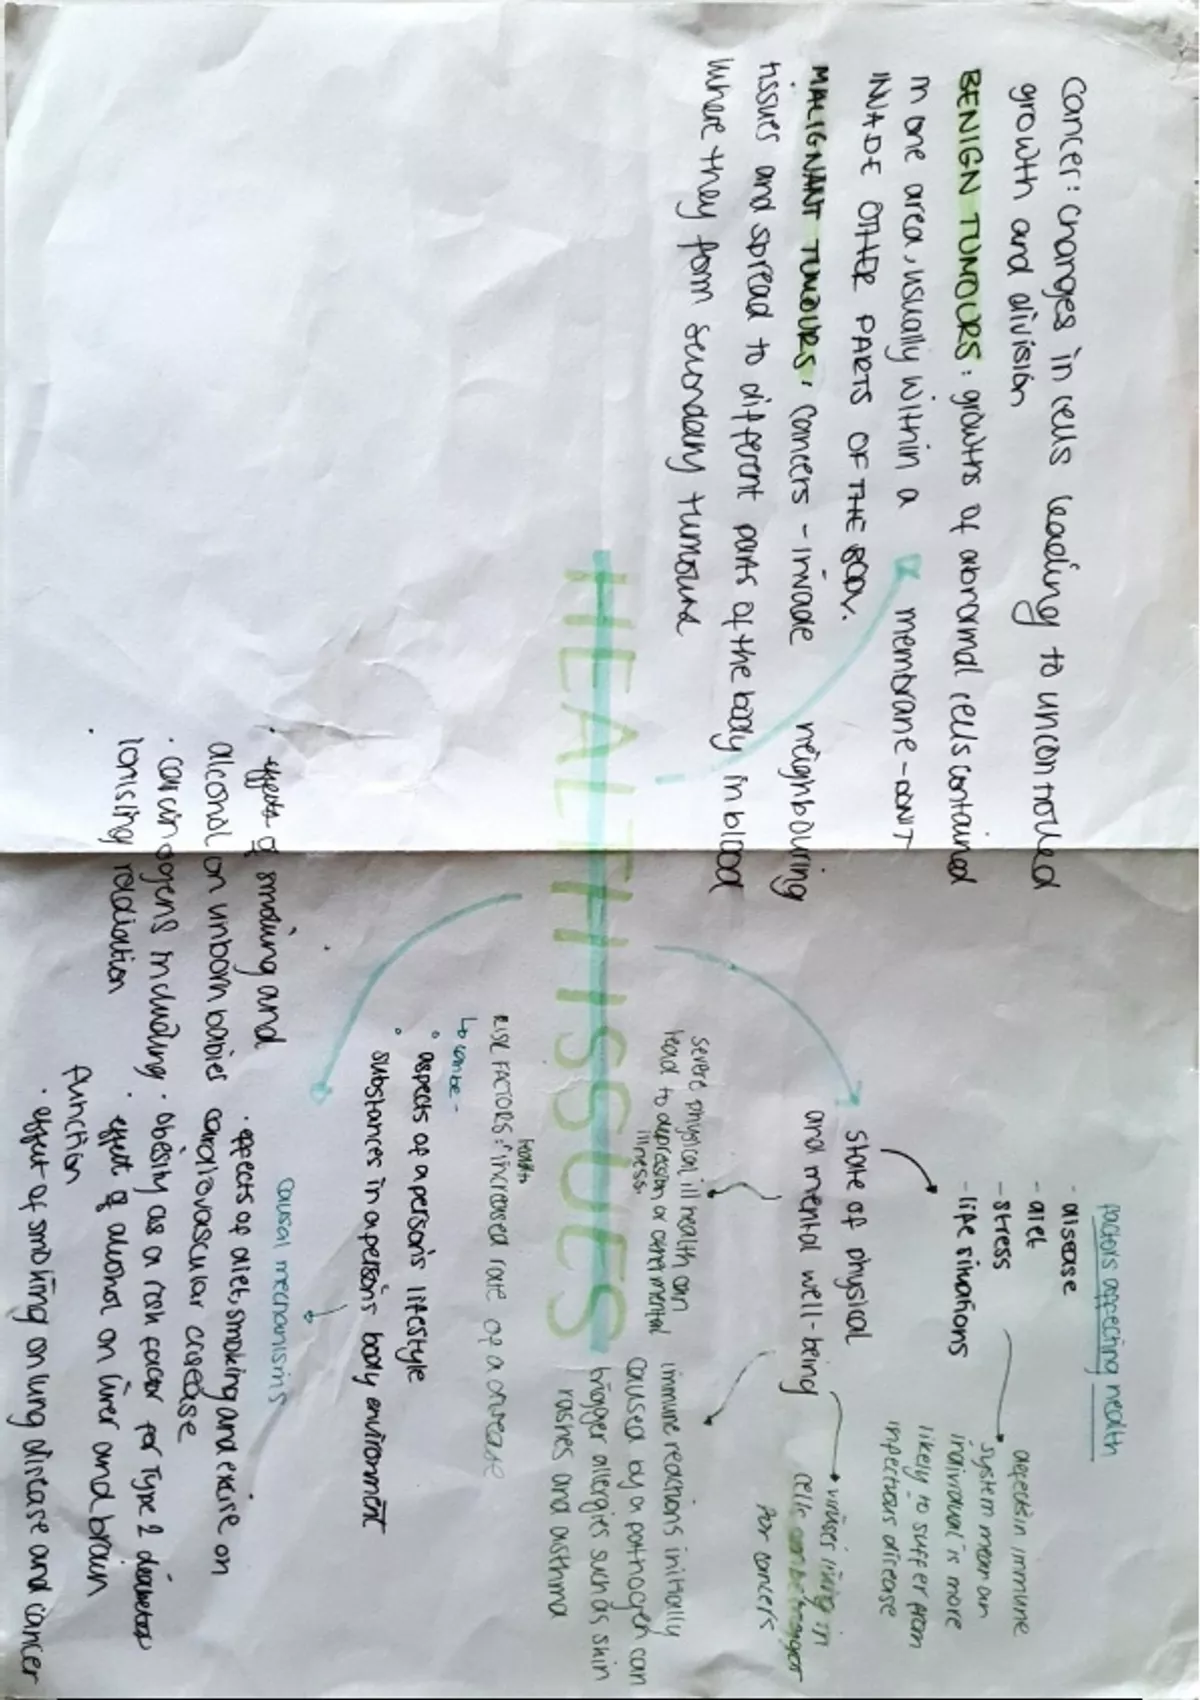 Cancer: changes in cells leading to uncontrolled
growth and division
BENIGN TUMOURS: growths of abnormal cells contained
in one area, usually within a membrane - DON'T
INVADE OTHER PARTS OF THE BODY.
MALIGNANT TUMOURS: cancers - invade neighbouring
tissues and spread to different parts of the body in blood
where they form secondary tumours
HEALTH ISSUES
factors affecting health
- disease
- diet
- stress
- life situations
defects in immune
system mean an
individual is more
likely to suffer from
infectious disease
state of physical
and mental well-being
• viruses living in
cells can be trigger
for cancers
severe physical ill health can
lead to depression or other mental
illness.
immune reactions initially
caused by a pathogen can
trigger allergies such as skin
rashes and asthma
RISK FACTORS: increased rate of a disease
health
↳ can be -
• aspects of a person's lifestyle
• substances in a person's body environment
causal mechanisms
• effects of smoking and
alcohol on unborn babies
• carcinogens including
ionising radiation
• effects of diet, smoking and exercise on
cardiovascular disease
• obesity as a risk factor for Type 2 diabetes
• effect of alcohol on liver and brain
function
• effect of smoking on lung disease and cancer